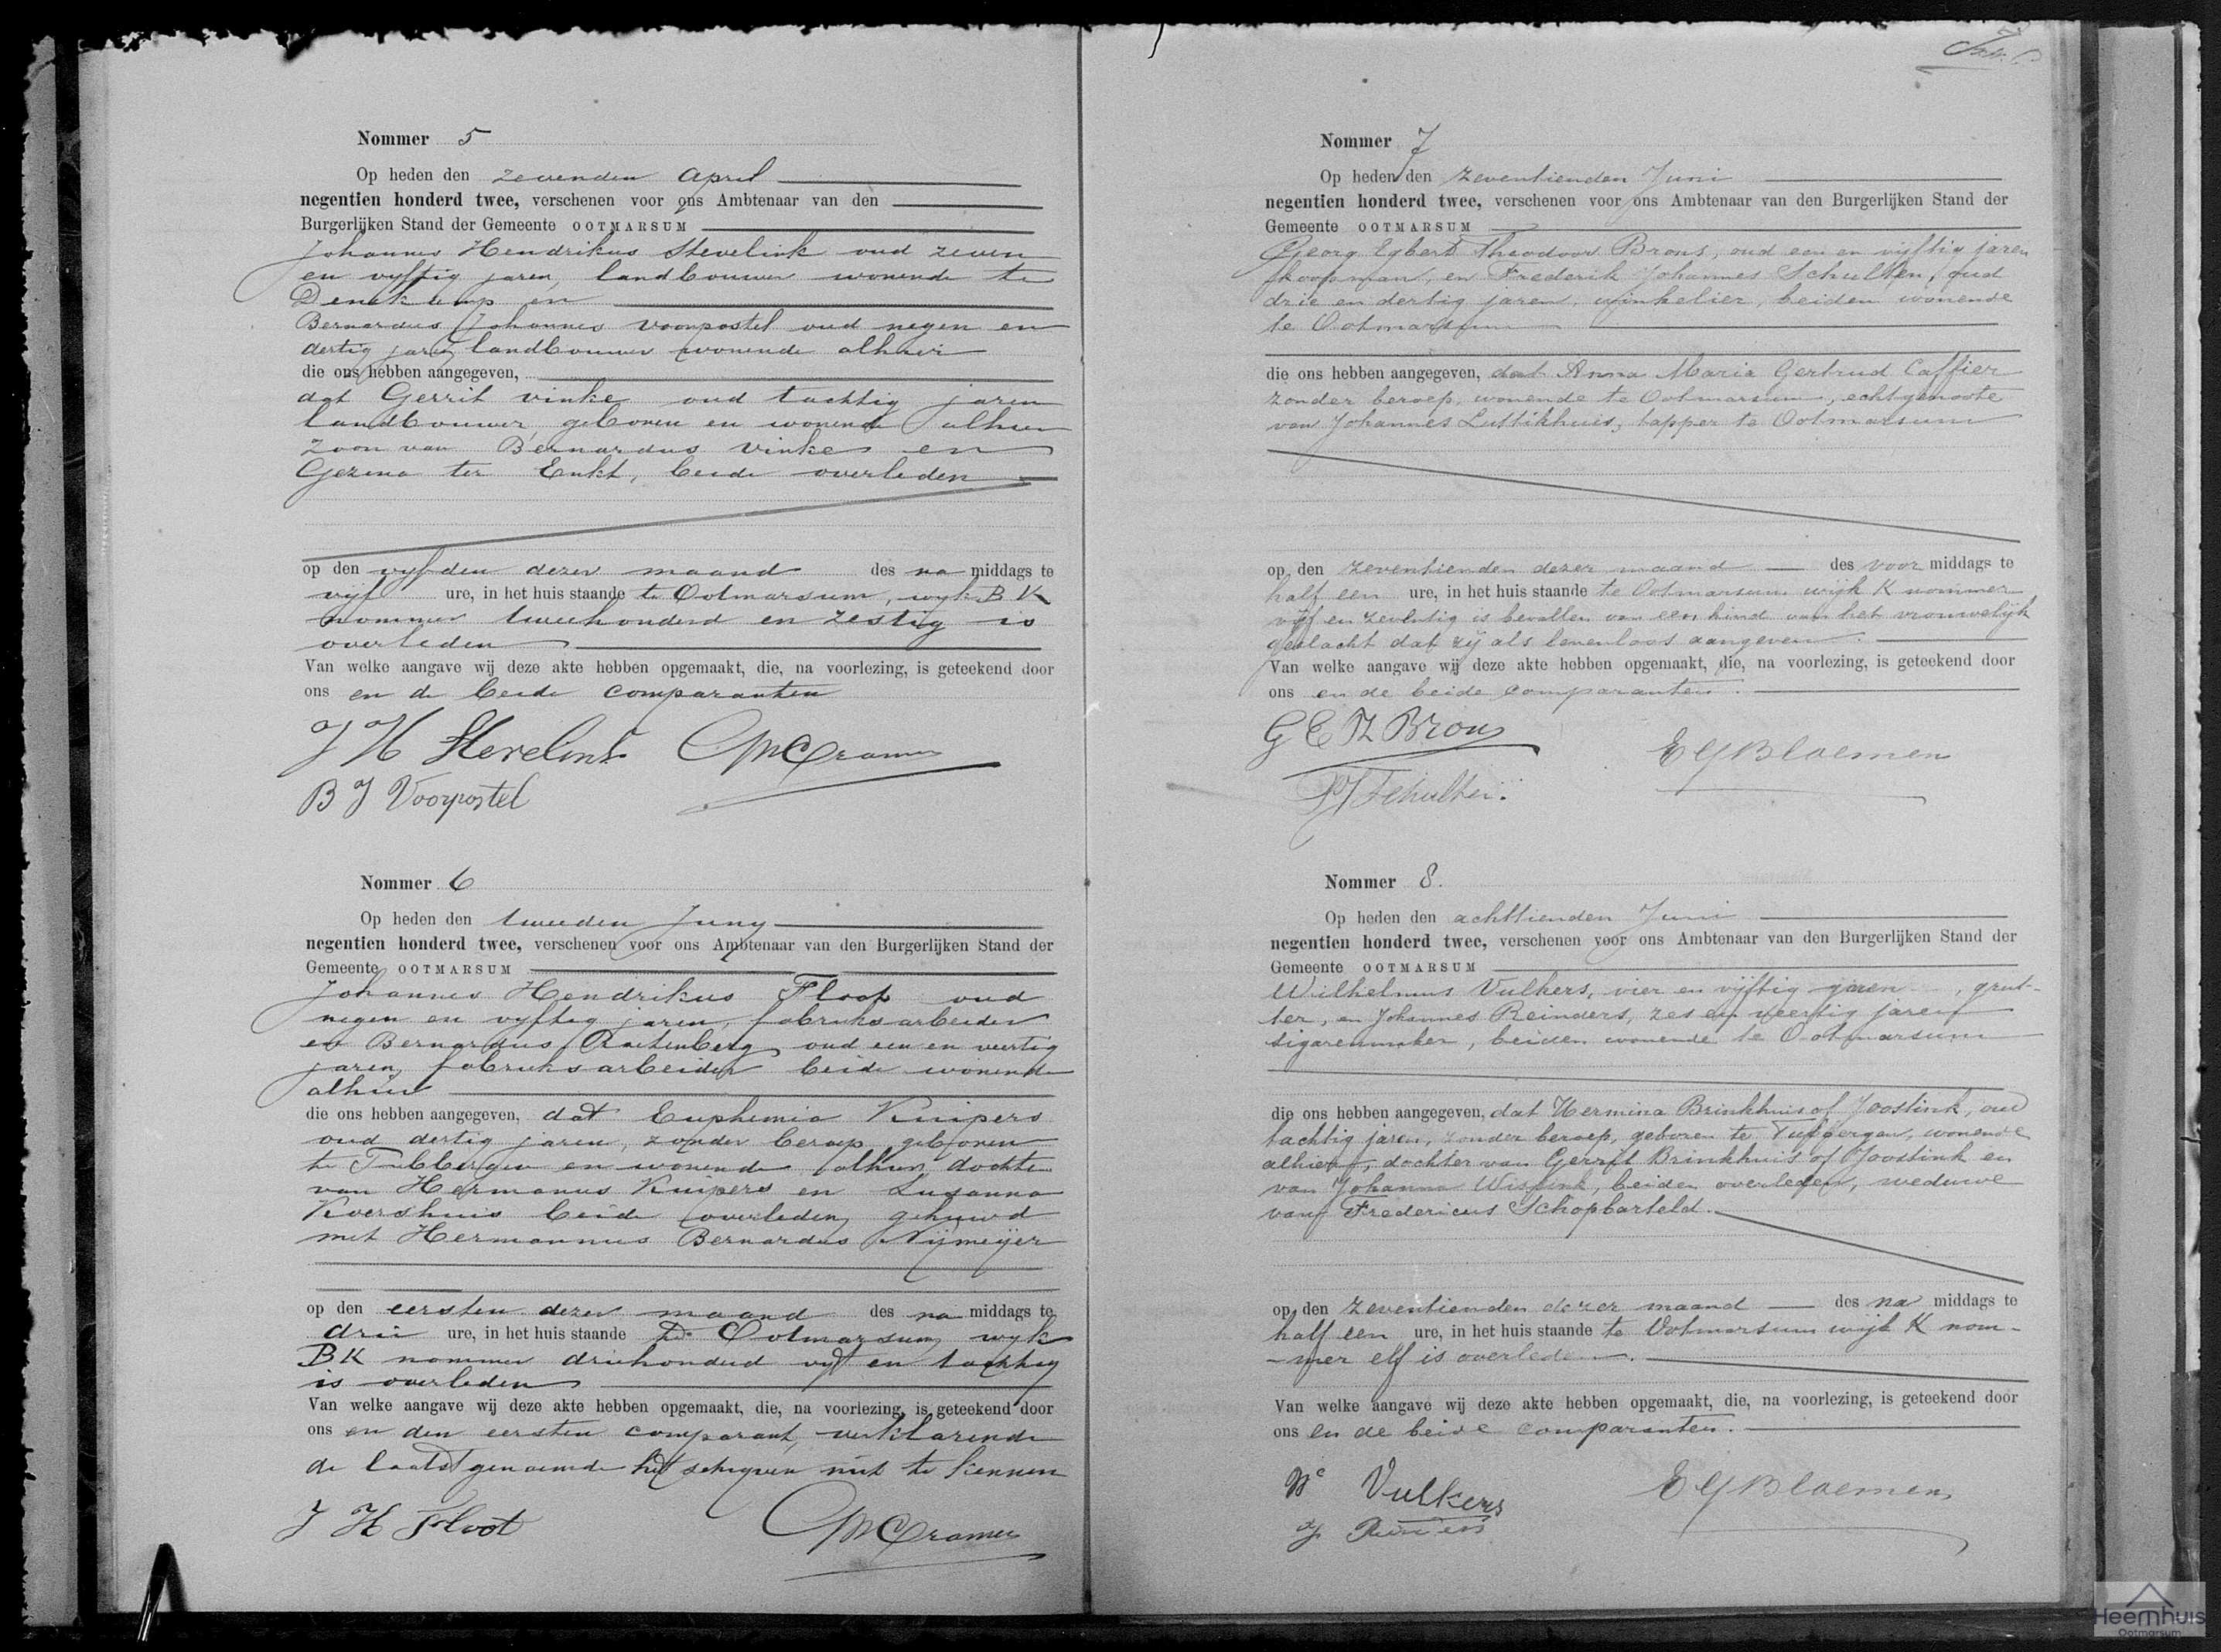 Nommer 5
Op heden den zevenden April
negentien honderd twee, verschenen voor ons Ambtenaar van den
Burgerlijken Stand der Gemeente OOTMARSUM
Johannes Hendrikus Stevelink oud zeven
en vyftig jaren, landbouwer wonende te
Denekamp en
Bernardus Johannes Voorpostel oud negen en
dertig jaren landbouwer wonende alhier
die ons hebben aangegeven,
dat Gerrit Vinke oud tachtig jaren
landbouwer geboren en wonende alhier
zoon van Bernardus Vinke en
Gezina ter Enkt, beide overleden
op den vyfden dezer maand des na middags te
vijf ure, in het huis staande te Ootmarsum, wyk B K
nommer tweehonderd en zestig is
overleden
Van welke aangave wij deze akte hebben opgemaakt, die, na voorlezing, is geteekend door
ons en de beide comparanten
J H Stevelink Cramer
B J Voorpostel
Nommer 6
Op heden den tweeden Juny
negentien honderd twee, verschenen voor ons Ambtenaar van den Burgerlijken Stand der
Gemeente OOTMARSUM
Johannes Hendrikus Floot oud
negen en vyftig jaren, fabrieksarbeider
en Bernardus oud een en veertig
jaren, fabrieksarbeider beide wonende
alhier
die ons hebben aangegeven, dat Euphemia Kuipers
oud dertig jaren, zonder beroep geboren
te Tubbergen en wonende alhier, dochter
van Hermanus Kuipers en Susanna
Koershuis beide overleden, gehuwd
met Hermannus Bernardus Nijmeijer
op den eersten dezer maand des na middags te
drie ure, in het huis staande te Ootmarsum, wyk
BK nommer driehonderd vyf en tachtig
is overleden
Van welke aangave wij deze akte hebben opgemaakt, die, na voorlezing, is geteekend door
ons en den eersten comparant, verklarende
de laatstgenoemde het schryven niet te kennen
J H Floot Cramer
Nommer 7
Op heden den zeventienden Juni
negentien honderd twee, verschenen voor ons Ambtenaar van den Burgerlijken Stand der
Gemeente OOTMARSUM
Georg Egbert Theodoor Brons, oud een en vijftig jaren
koopman, en Frederik Johannes Schulten, oud
drie en dertig jaren, winkelier, beiden wonende
te Ootmarsum
die ons hebben aangegeven, dat Anna Maria Gertrud Caffier
zonder beroep, wonende te Ootmarsum, echtgenoote
van Johannes Luttikhuis, tapper te Ootmarsum
op den zeventienden dezer maand des voor middags te
half een ure, in het huis staande te Ootmarsum wijk K nommer
vijf en zeventig is bevallen van een kind van het vrouwelijk
geslacht dat zij als levenloos aangeven.
Van welke aangave wij deze akte hebben opgemaakt, die, na voorlezing, is geteekend door
ons en de beide comparanten.
G E Th Brons
E G Bloemen
F J Schulten.
Nommer 8.
Op heden den achttienden Juni
negentien honderd twee, verschenen voor ons Ambtenaar van den Burgerlijken Stand der
Gemeente OOTMARSUM
Wilhelmus Vulkers, vier en vijftig jaren, grut-
ter, en Johannes Reinders, zes en veertig jaren
sigarenmaker, beiden wonende te Ootmarsum
die ons hebben aangegeven, dat Hermina Brinkhuis of Joostink, oud
tachtig jaren, zonder beroep, geboren te Tubbergen, wonende
alhier, dochter van Gerrit Brinkhuis of Joostink en
van Johanna beiden overleden, weduwe
van Fredericus Schopbarteld.
op den zeventienden dezer maand des na middags te
half een ure, in het huis staande te Ootmarsum wijk K nom-
-mer elf is overleden.
Van welke aangave wij deze akte hebben opgemaakt, die, na voorlezing, is geteekend door
ons en de beide comparanten.
Wm Vulkers
E G Bloemen
J Reinders
Heemhuis
Ootmarsum